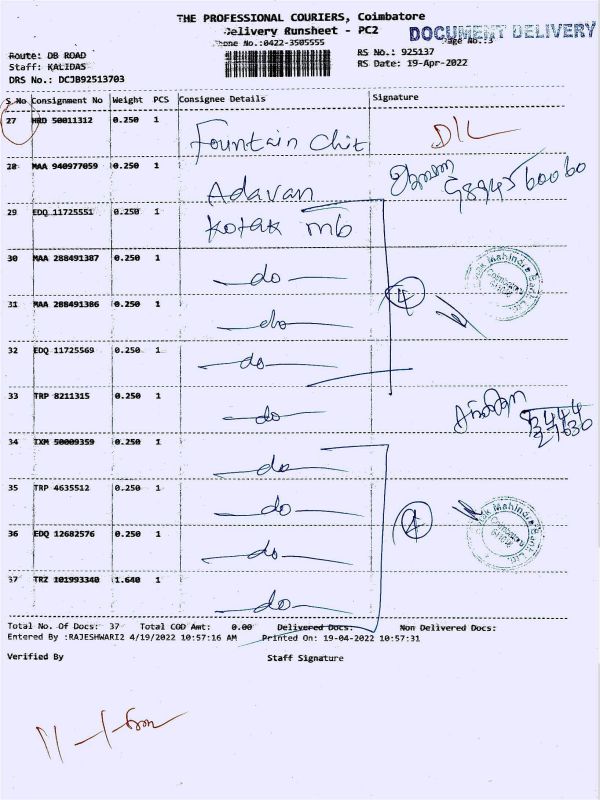 THE PROFESSIONAL COURIERS, Coimbatore
Delivery Runsheet - PC2
DOCUMENT DELIVERY
Phone No.:0422-3505555
Page No.:3
Route: DB ROAD
Staff: KALIDAS
DRS No.: DCJB92513703
RS No.: 925137
RS Date: 19-Apr-2022
S.No Consignment No Weight PCS Consignee Details Signature
27 HRD 50011312 0.250 1 Fountain Chit D/L
28 MAA 940977059 0.250 1 Adavan
29 EDQ 11725551 0.250 1 Kotak mb
30 MAA 288491387 0.250 1 do
4
31 MAA 288491386 0.250 1 do
32 EDQ 11725569 0.250 1 do
33 TRP 8211315 0.250 1 do
34 IXM 50009359 0.250 1 do
35 TRP 4635512 0.250 1 do
36 EDQ 12682576 0.250 1 do
37 TRZ 101993340 1.640 1 do
Total No. Of Docs: 37 Total COD Amt: 0.00 Delivered Docs: Non Delivered Docs:
Entered By :RAJESHWARI2 4/19/2022 10:57:16 AM Printed On: 19-04-2022 10:57:31
Verified By Staff Signature